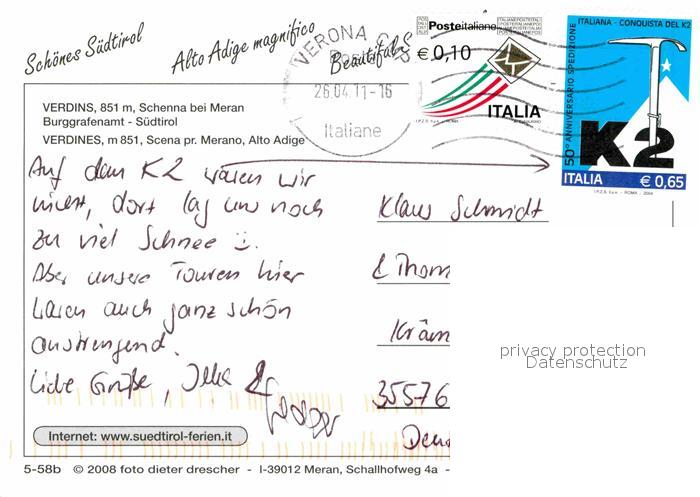 Schönes Südtirol
Alto Adige magnifico
Beautiful S
VERONA CMP
26.04.11-16
Italiane
Posteitaliane
€ 0,10
ITALIA
ITALIANA - CONQUISTA DEL K2
50° ANNIVERSARIO SPEDIZIONE
K2
ITALIA € 0,65
I.P.Z.S. S.p.A. - ROMA - 2004
VERDINS, 851 m, Schenna bei Meran
Burggrafenamt - Südtirol
VERDINES, m 851, Scena pr. Merano, Alto Adige
Auf dem K2 waren wir
nicht, dort lag uns noch
zu viel Schnee
Aber unsere Touren hier
waren auch ganz schön
anstrengend.
Liebe Grüße,
Klaus Schmidt
& Thom
Kräm
35576
Deu
privacy protection
Datenschutz
Internet: www.suedtirol-ferien.it
5-58b © 2008 foto dieter drescher - I-39012 Meran, Schallhofweg 4a -